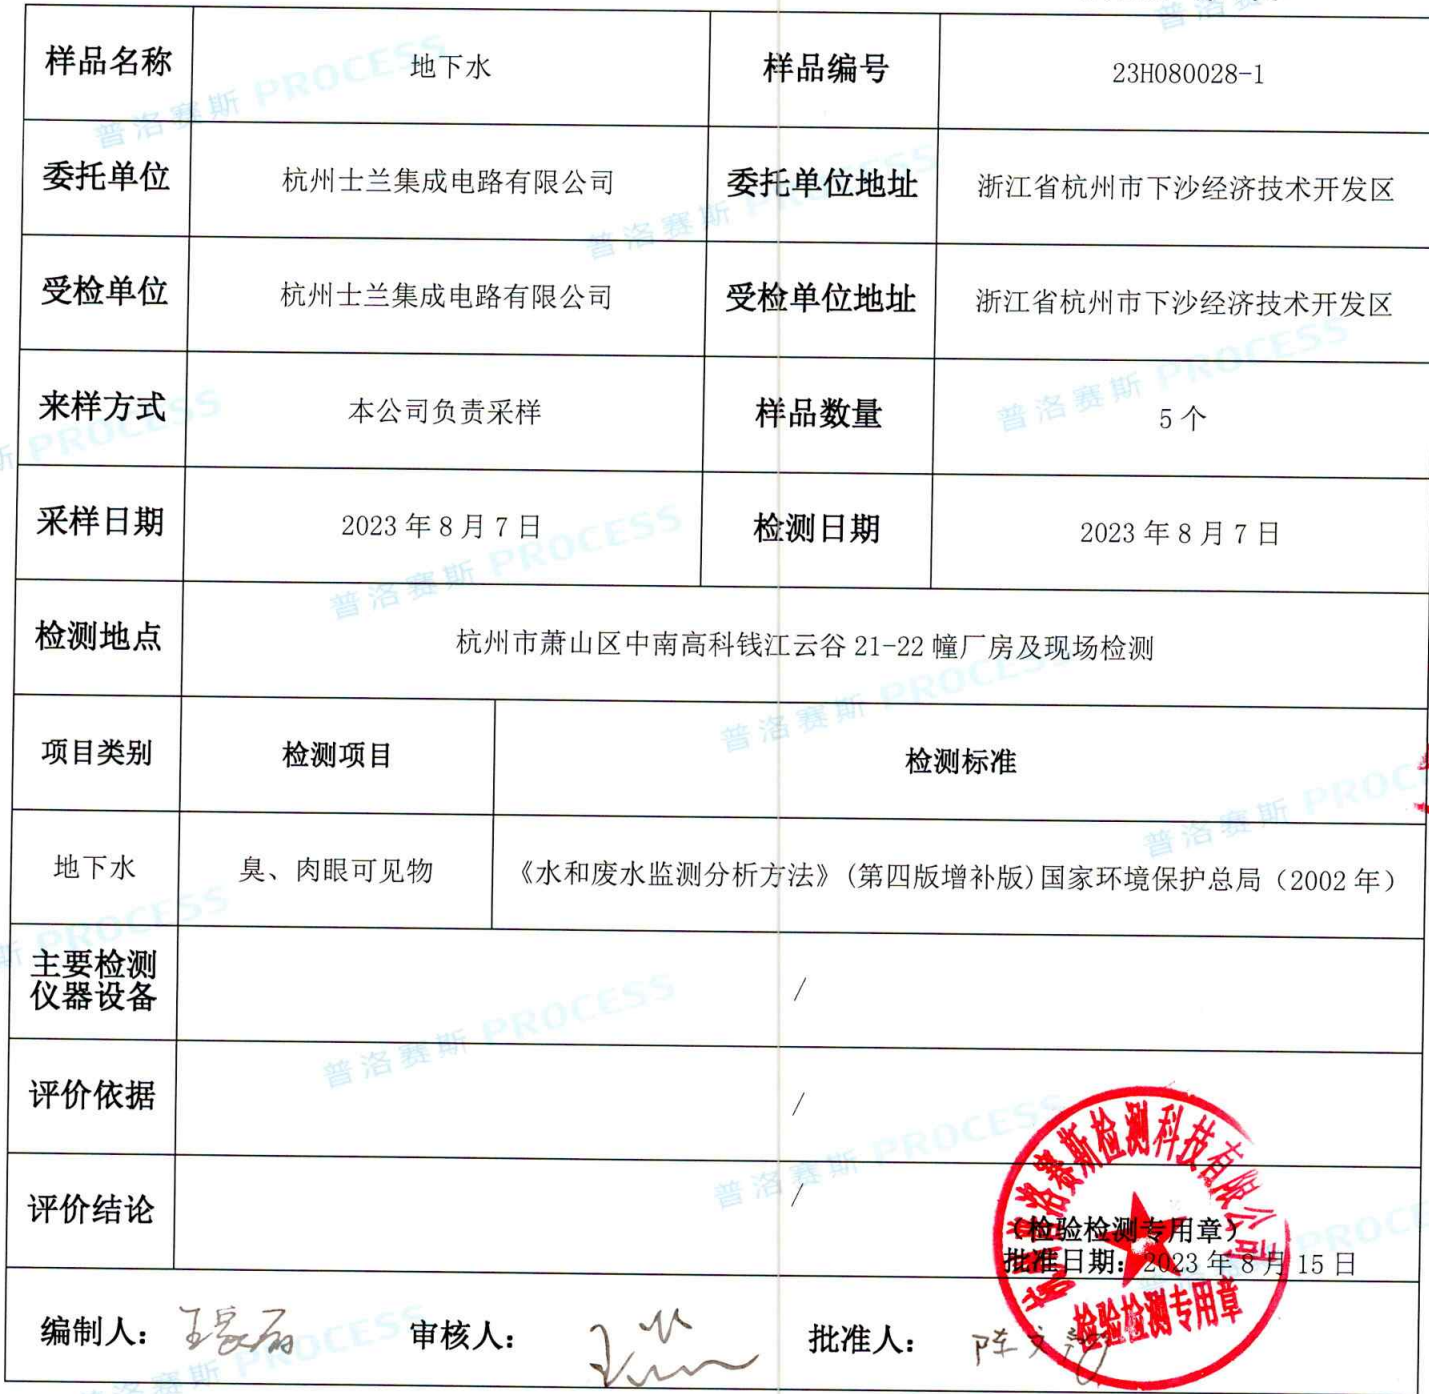 样品名称 地下水 样品编号 23H080028-1
委托单位 杭州士兰集成电路有限公司 委托单位地址 浙江省杭州市下沙经济技术开发区
受检单位 杭州士兰集成电路有限公司 受检单位地址 浙江省杭州市下沙经济技术开发区
来样方式 本公司负责采样 样品数量 5个
采样日期 2023年8月7日 检测日期 2023年8月7日
检测地点 杭州市萧山区中南高科钱江云谷21-22幢厂房及现场检测
项目类别 检测项目 检测标准
地下水 臭、肉眼可见物 《水和废水监测分析方法》(第四版增补版)国家环境保护总局（2002年）
主要检测
仪器设备 /
评价依据 /
评价结论 /
（检验检测专用章）
批准日期：2023年8月15日
编制人： 审核人： 批准人：
洛赛斯检测科技有限公司
检验检测专用章
普洛赛斯 PROCESS